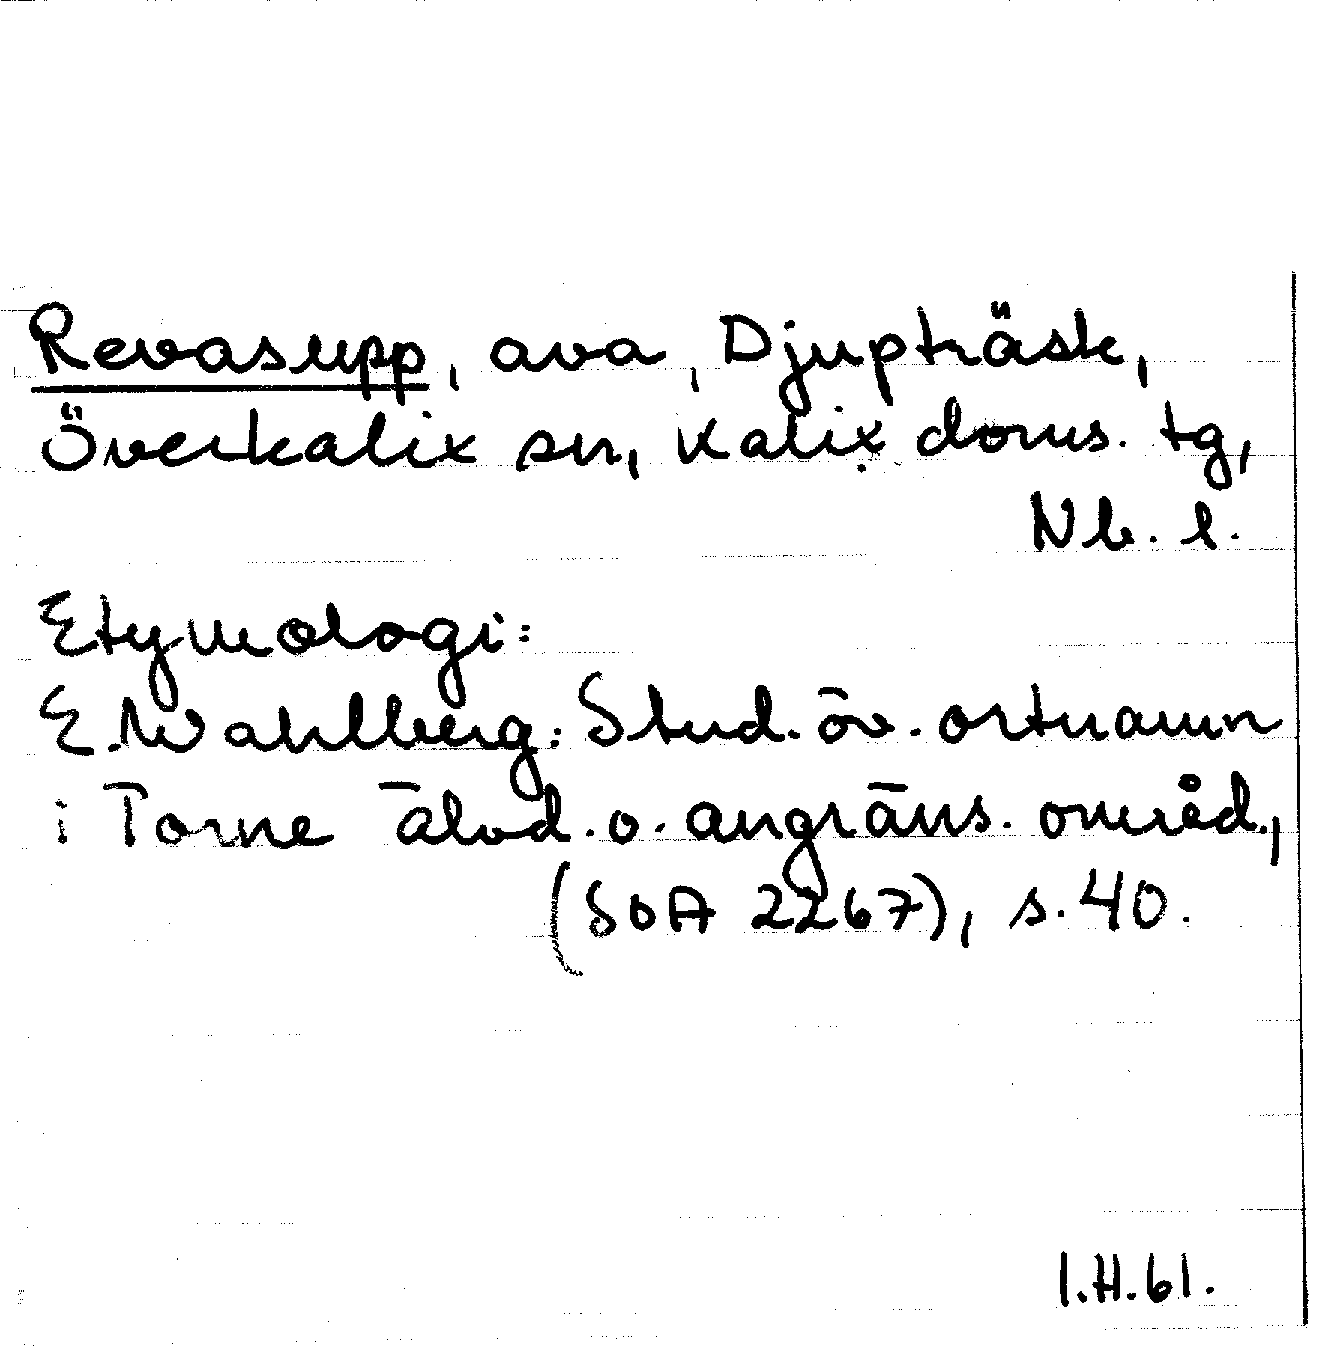 Revasupp, ava, Djupträsk,
Överkalix sn, Kalix doms. tg,
Nb. l.
Etymologi:
E. Wahlberg: Stud. öv. ortnamn
i Torne älvd. o. angräns. områd.,
(SOA 2267), s. 40.
I.H. 61.